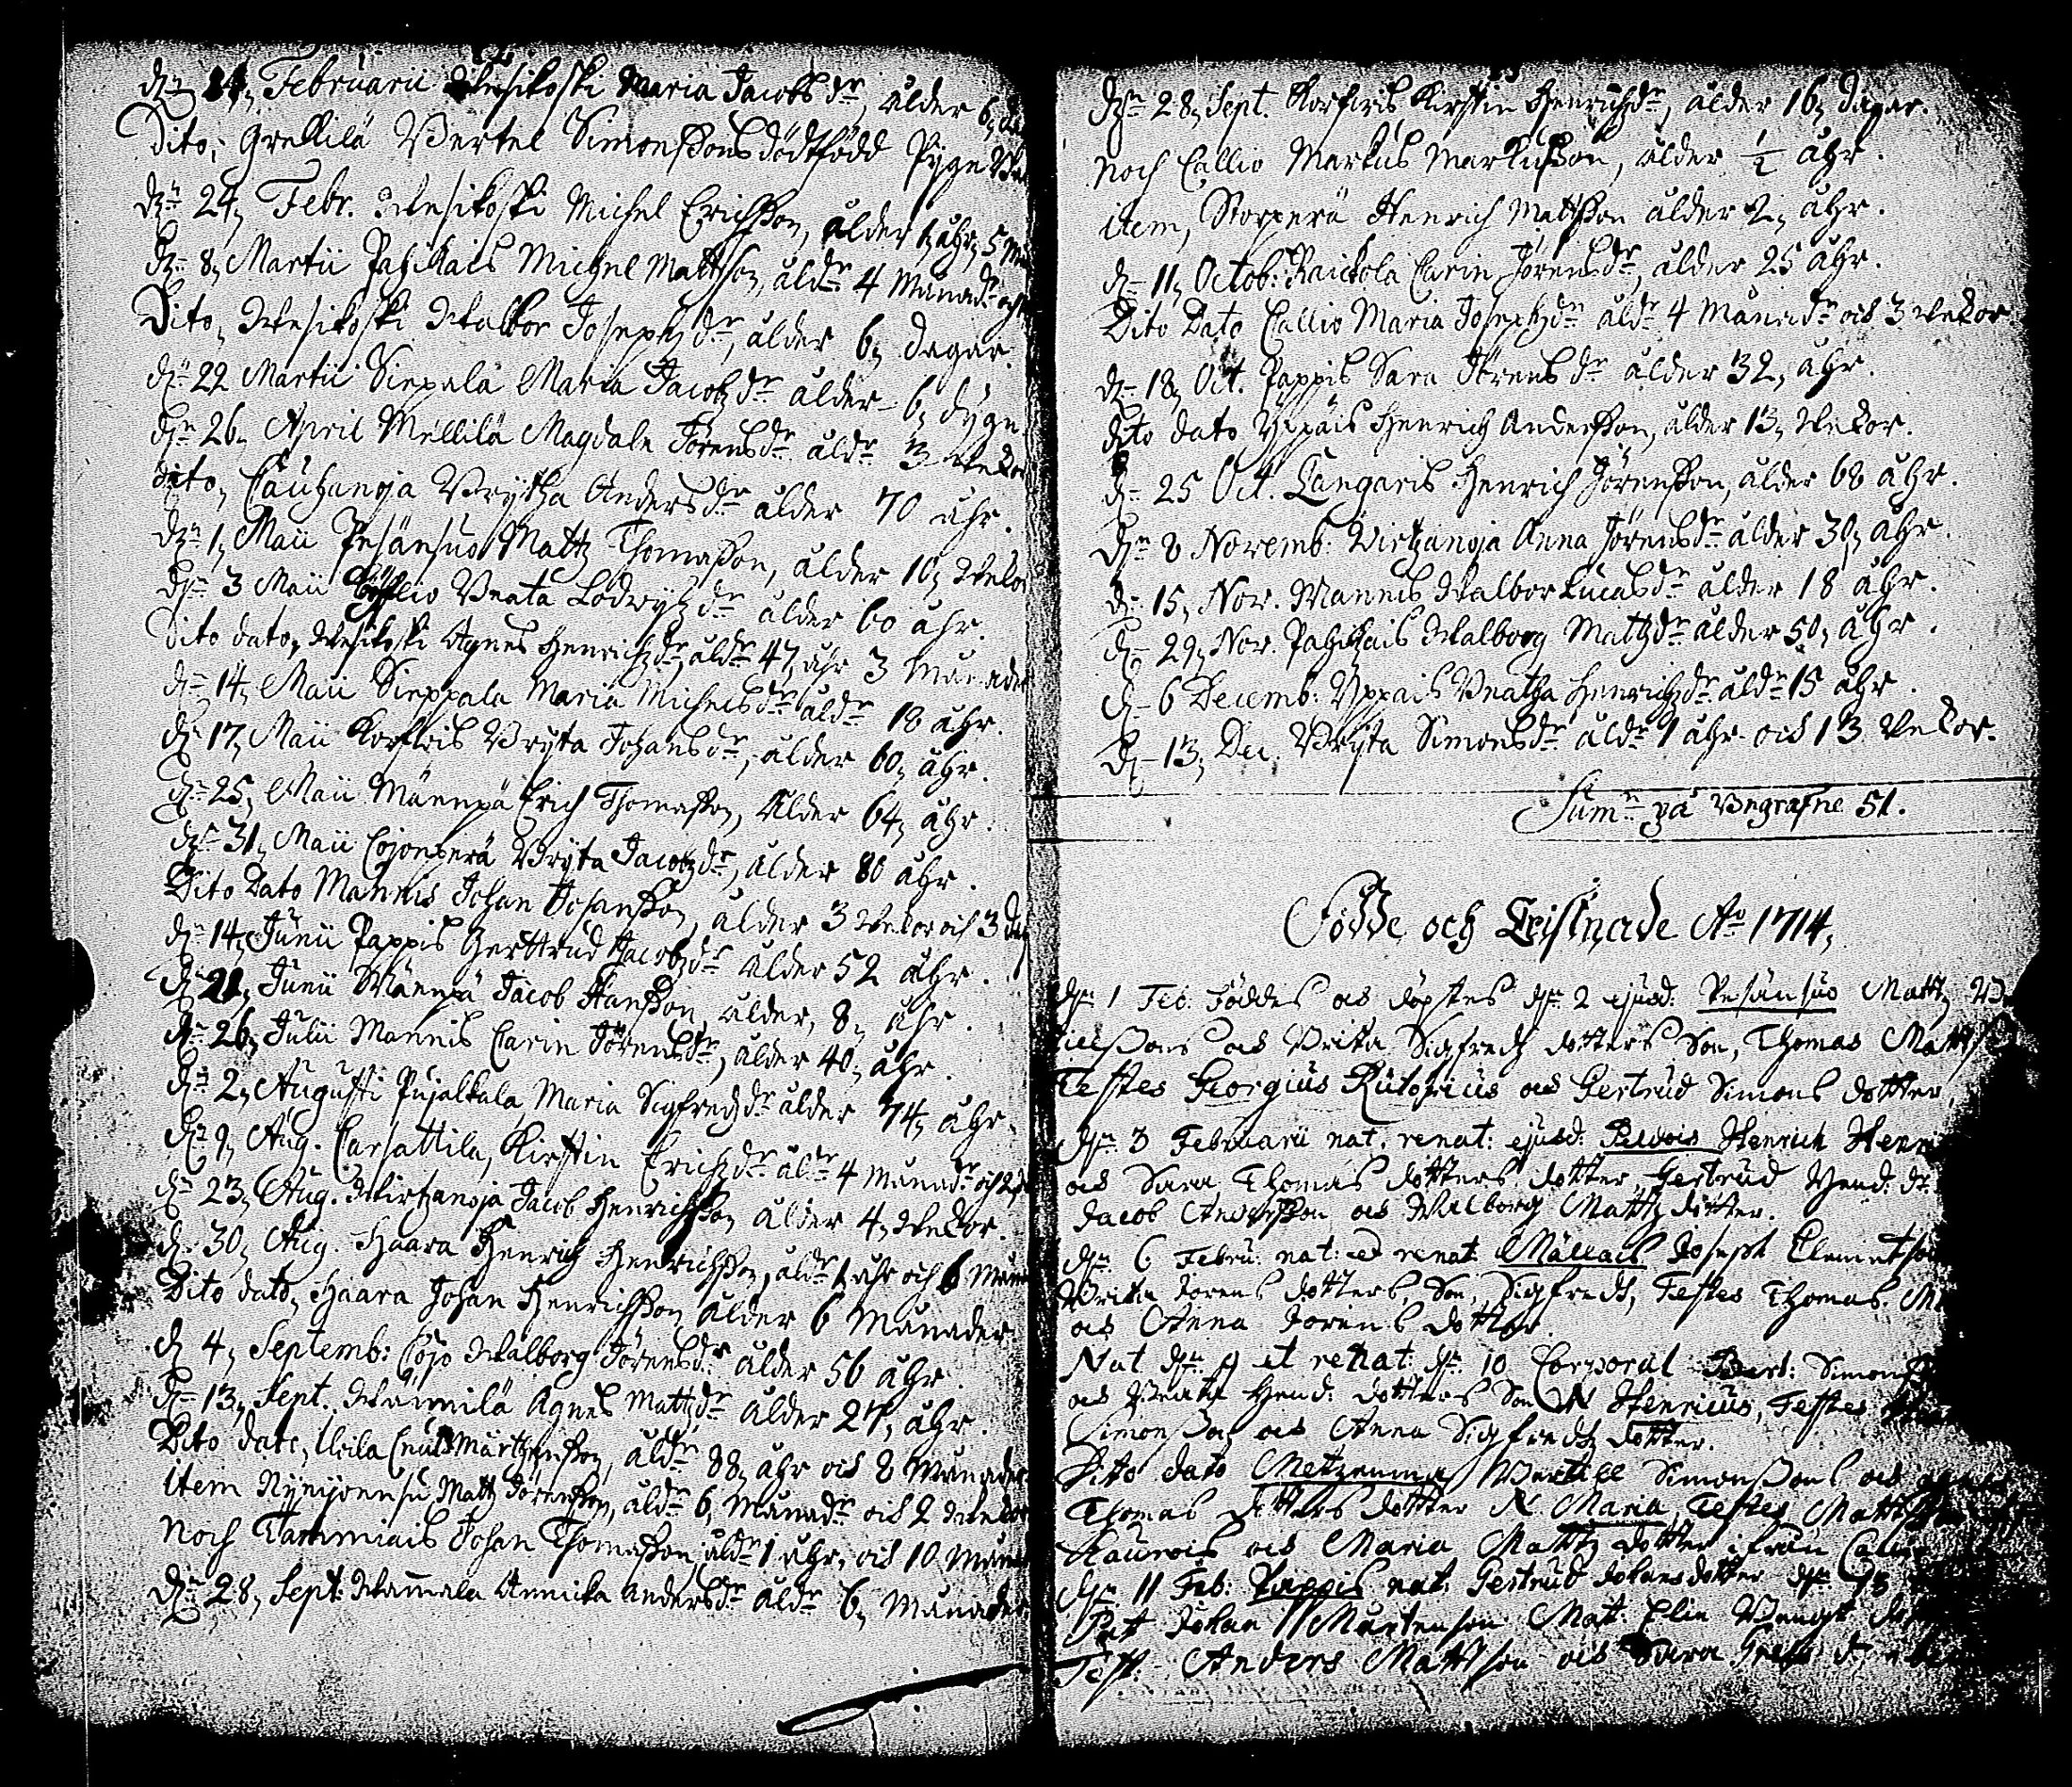 dn 14, Februarii Wesikoski Maria Jacobs dr, ålder 6,
Dito, Grellilä Bertel Simonssons dödfödd Pyge
dn 24, Febr. Wesikoski Michel Erichsson, ålder 1, åhr, 5
dn 8, Martii Pahikais Michel Mattsson, åldr 4 Månadr och
Dito, Wesikoski Walbor Josephz dr, ålder 6, dagar.
dn 22 Martii Sieppala Maria Jacobz dr ålder 6, dygn
dn 26, April Mellilä Magdale Jörens dr åldr 3 wekor
Dito, Cauhanoja Brytha Anders dr ålder 70 åhr.
dn 1, Maii Pesänsuo Mattz Thomasson, ålder 10, Wekor
dn 3 Maii Beata Lodwijz dr ålder 60 åhr.
Dito dato, Wesikoski Agnes Henrichz dr åldr 47, åhr 3 Månader
dn 14, Maii Sieppala Maria Michels dr åldr 18 åhr.
dn 17, Maii Korfwis Bryta Johans dr, ålder 60, åhr.
dn 25, Maii Männpä Erich Thomasson, ålder 64, åhr.
dn 31, Maii Cojonperä Bryta Jacobz dr, ålder 80 åhr.
Dito Dato Mannis Johan Johansson, ålder 3 Wekor och 3
dn 14, Junii Pappis Gerttrud Jacobz dr ålder 52 åhr.
dn 21, Junii Männpä Jacob Hansson, ålder, 8, åhr.
dn 26, Julii Mannis Carin Jörens dr, ålder 40, åhr.
dn 2, Augusti Pujalkala Maria Sigfredz dr ålder 74, åhr.
dn 9, Aug. Carsattila, Kirstin Erichz dr åldr 4 Månadr och
dn 23, Aug. Wirtzanoja Jacob Henrichsson ålder 4, Wekor.
dn 30, Aug. Haara Henrich Henrichsson, åldr 1, åhr och 6 Måna
Dito dato, Haara Johan Henrichsson ålder 6 Månader.
d 4, Septemb: Cojo Walborg Jörens dr ålder 56 åhr.
dn 13, Sept. Agnes Mattz dr ålder 27, åhr.
Dito dato, Ueila Cnut Mårtzensson, åldr 88, åhr och 8 Månader
item Nynjoensu Matz Jörensson, åldr 6, Månadr och 2 Wekor
Noch Tammiais Johan Thomasson, åldr 1 åhr, och 10 Måna
dn 28, Sept: Wammala Annicka Anders dr åldr 6, Månader
dn 28, Sept. Korfwis Kirstin Henrichz dr, ålder 16, dagar.
Noch Callio Markus Markusson, ålder ½ åhr.
item, Storperä Henrich Mattsson ålder 2, åhr.
d 11, Octob: Raickola Carin Jörens dr, ålder 25 åhr.
Dito Dato Callio Maria Josephz dr åldr 4 Månadr och 3 Wekor.
d 18, Oct. Pappis Sara Jörens dr ålder 32, åhr.
Dito dato Yppäis Henrich Andersson, ålder 13, Wekor.
d 25 Oct. Langaris Henrich Jörensson, ålder 68 åhr.
dn 8 Novemb: Wirtzanoja Anna Jörens dr ålder 30, åhr.
d 15, Nov. Mannis Walbor Lucas dr ålder 18 åhr.
d 29, Nov. Pahikais Walborg Mattz dr ålder 50, åhr.
d 6 Decemb: Yppais Beatha Henrichz dr åldr 15 åhr.
d 13, Dec. Bryta Simons dr åldr 1 åhr och 13 Wekor.
Summ på Begrafne 51.
Födde och Christnade Ao 1714,
dn 1 Feb: Föddes och döptes dn 2 ejusd: Pesänsuo Mattz
och Brita Sigfredz dotters Son, Thomas
Testes Georgius Rutorius och Gertrud Simons dotter,
dn 3 Februarii nat: renat: ejusd: Pelvois Henrich
och Sara Thomas dotters dotter Gertrud Hend: dr.
Jacob Andersson och Walborg Mattz dotter.
dn 6 Febru: nat: et renat: Mällais Joseph Clementz
Brita Jörens dotters, Son, Sigfredh, Testes Thomas
och Anna Jörens dotter.
Nat dn 9 et renat: dn 10 Corporal Bert: Simons
och Beata Hend: dotters Son N Henricus, Testes
Simonsson och Anna Sigfredz dotter.
Dito dato Metzenma Bertill Simonssons och
Thomas dotters dotter N. Maria Testes
och Maria Mattz dotter ifrån
dn 11 Feb: Pappis nat: Gertrud Johans dotter dn
Pat Johan Mårtensson Mat: Elin Bengt
Test: Anders Mattsson och Sara